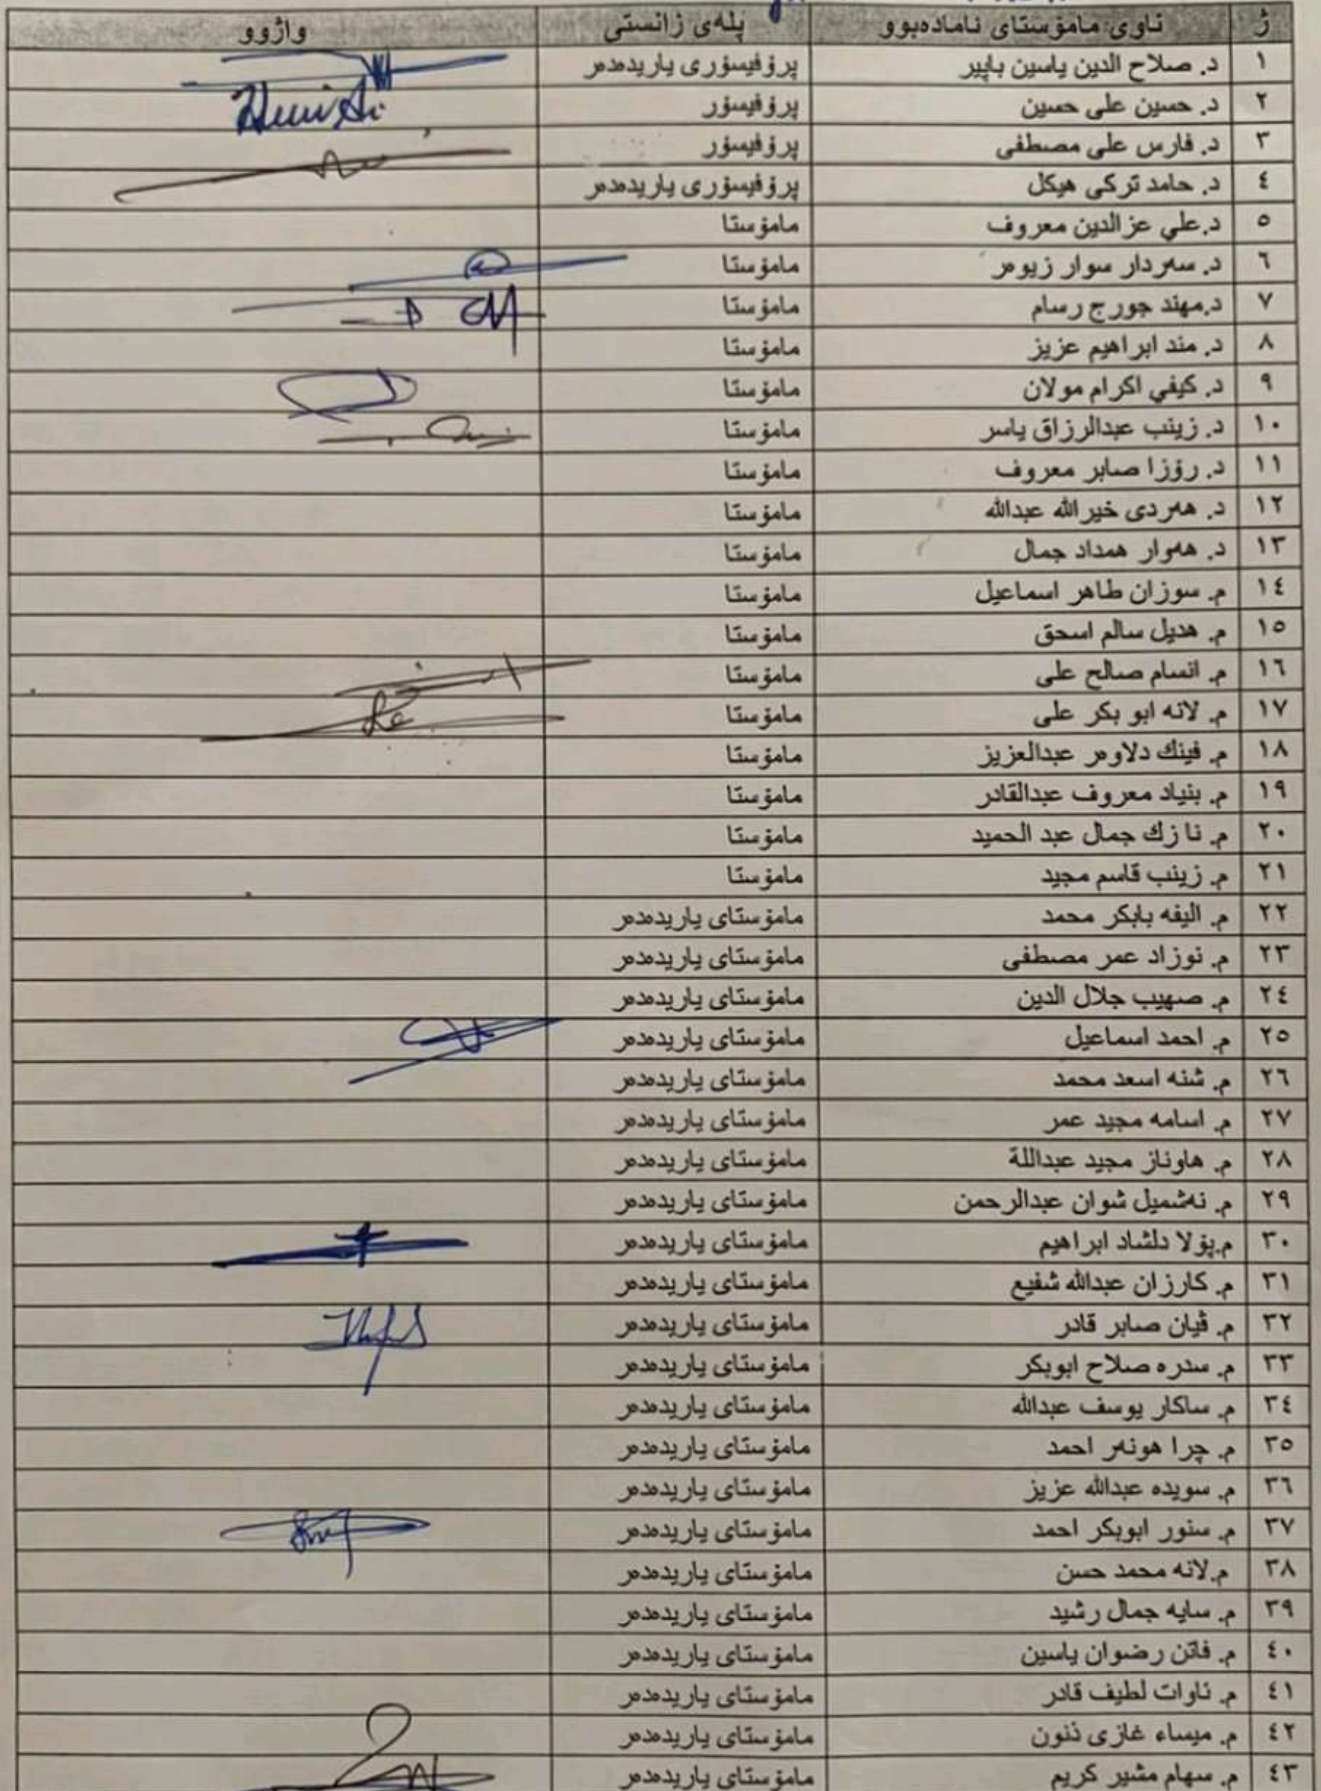 ژ ناوی مامۆستای ئامادەبوو پلەی زانستی واژوو
١ د. صلاح الدين ياسين باپير پرۆفیسۆری یاریدەدەر
٢ د. حسين على حسين پرۆفیسۆر
٣ د. فارس على مصطفى پرۆفیسۆر
٤ د. حامد تركى هيكل پرۆفیسۆری یاریدەدەر
٥ د.علي عزالدين معروف مامۆستا
٦ د. سەردار سوار زیوەر مامۆستا
٧ د.مهند جورج رسام مامۆستا
٨ د. مند ابراهيم عزيز مامۆستا
٩ د. كيفي اكرام مولان مامۆستا
١٠ د. زينب عبدالرزاق ياسر مامۆستا
١١ د. رۆزا صابر معروف مامۆستا
١٢ د. هەردى خيرالله عبدالله مامۆستا
١٣ د. هەوار همداد جمال مامۆستا
١٤ م. سوزان طاهر اسماعيل مامۆستا
١٥ م. هديل سالم اسحق مامۆستا
١٦ م. انسام صالح على مامۆستا
١٧ م. لانه ابو بكر على مامۆستا
١٨ م. فينك دلاوەر عبدالعزيز مامۆستا
١٩ م. بنياد معروف عبدالقادر مامۆستا
٢٠ م. نازك جمال عبد الحميد مامۆستا
٢١ م. زينب قاسم مجيد مامۆستا
٢٢ م. اليفه بابكر محمد مامۆستای یاریدەدەر
٢٣ م. نوزاد عمر مصطفى مامۆستای یاریدەدەر
٢٤ م. صهيب جلال الدين مامۆستای یاریدەدەر
٢٥ م. احمد اسماعيل مامۆستای یاریدەدەر
٢٦ م. شنه اسعد محمد مامۆستای یاریدەدەر
٢٧ م. اسامه مجيد عمر مامۆستای یاریدەدەر
٢٨ م. هاوناز مجيد عبداللة مامۆستای یاریدەدەر
٢٩ م. نەشمیل شوان عبدالرحمن مامۆستای یاریدەدەر
٣٠ م.پۆلا دلشاد ابراهيم مامۆستای یاریدەدەر
٣١ م. كارزان عبدالله شفيع مامۆستای یاریدەدەر
٣٢ م. ڤیان صابر قادر مامۆستای یاریدەدەر
٣٣ م. سدره صلاح ابوبكر مامۆستای یاریدەدەر
٣٤ م. ساكار يوسف عبدالله مامۆستای یاریدەدەر
٣٥ م. چرا هونەر احمد مامۆستای یاریدەدەر
٣٦ م. سويده عبدالله عزيز مامۆستای یاریدەدەر
٣٧ م. سنور ابوبكر احمد مامۆستای یاریدەدەر
٣٨ م.لانه محمد حسن مامۆستای یاریدەدەر
٣٩ م. سايه جمال رشيد مامۆستای یاریدەدەر
٤٠ م. فاتن رضوان ياسين مامۆستای یاریدەدەر
٤١ م. ئاوات لطيف قادر مامۆستای یاریدەدەر
٤٢ م. ميساء غازى ذنون مامۆستای یاریدەدەر
٤٣ م. سهام مشير كريم مامۆستای یاریدەدەر